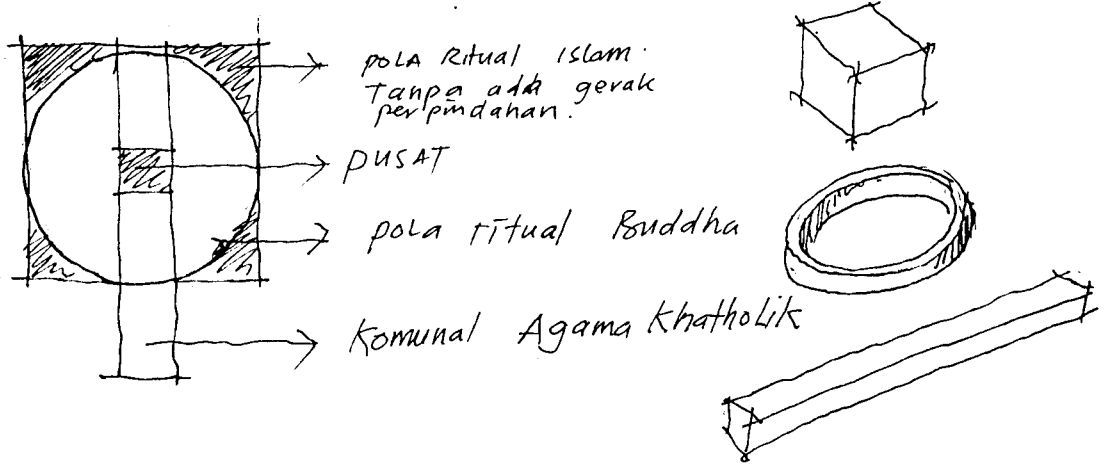 pola Ritual Islam.
Tanpa ada gerak
perpindahan.
PUSAT
pola ritual Buddha
Komunal Agama Khatholik